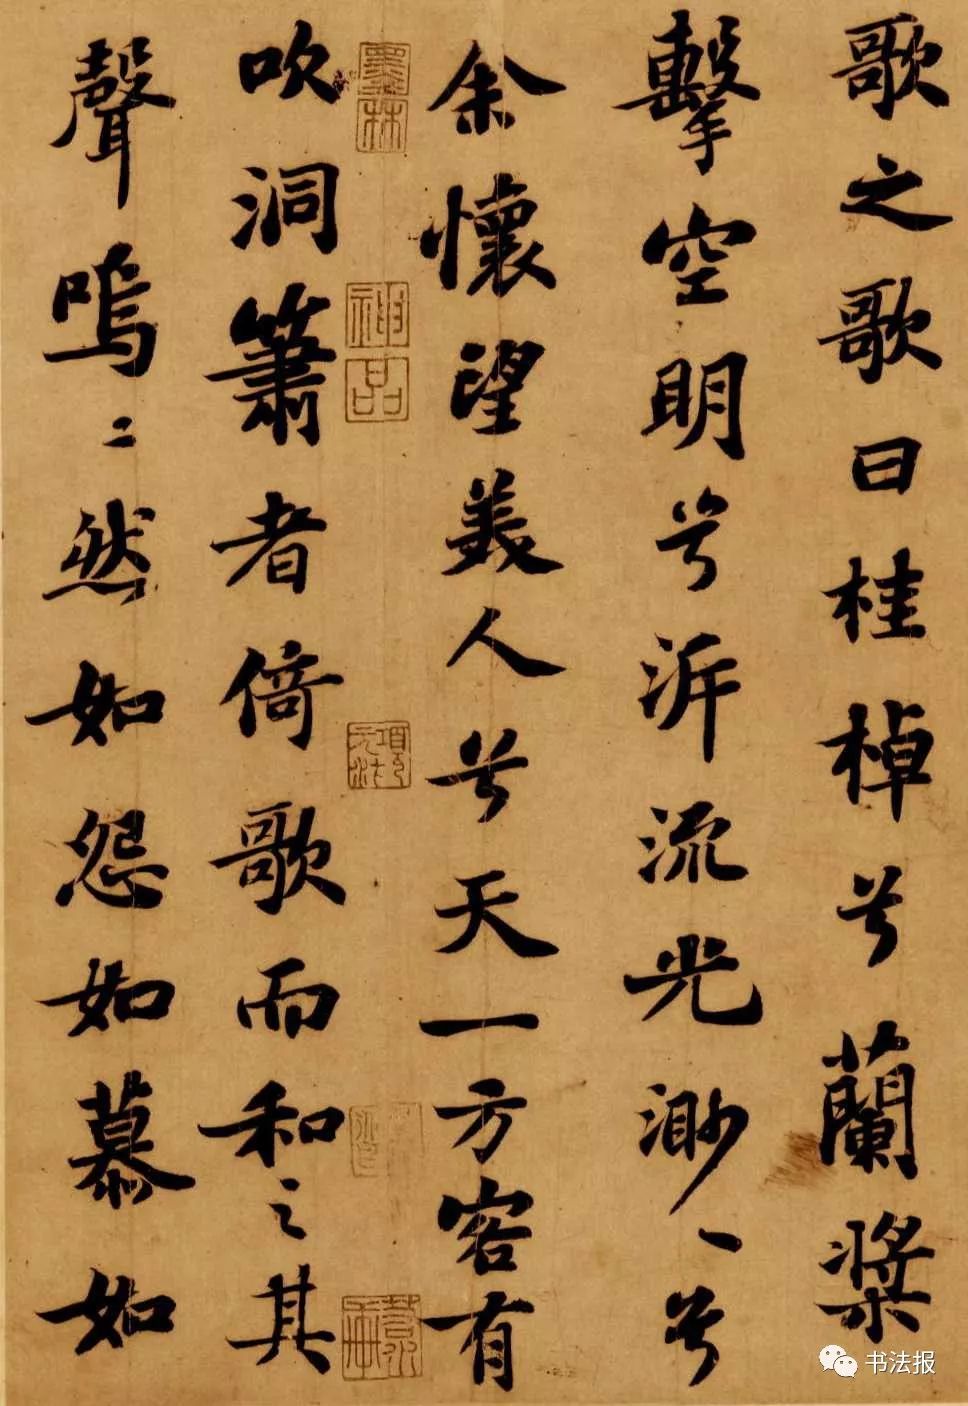 歌之歌曰桂棹兮蘭槳
擊空明兮泝流光渺〻兮
余懷望美人兮天一方客有
吹洞簫者倚歌而和之其
聲嗚〻然如怨如慕如
墨林
神品
項元汴
书法报